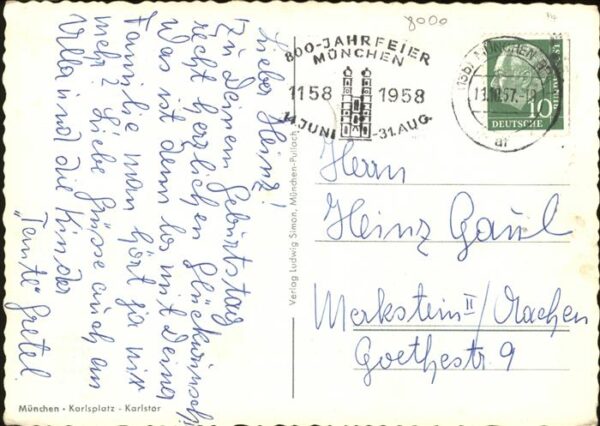 Lieber Heinz!
Zu Deinem Geburtstag
recht herzlichen Glückwunsch,
Was ist denn los mit Deiner
Familie man hört ja nix
mehr? Liebe Grüsse auch an
Ulla und die Kinder
Tante Gretel
München - Karlsplatz - Karlstor
Verlag Ludwig Simon, München-Pullach
8000
800-JAHRFEIER
MÜNCHEN
1158 1958
14. JUNI - 31. AUG.
MÜNCHEN
57
ar
10
DEUTSCHE
BUNDESPOST
Herrn
Heinz Gaul
Merkstein II/Aachen
Goethestr 9